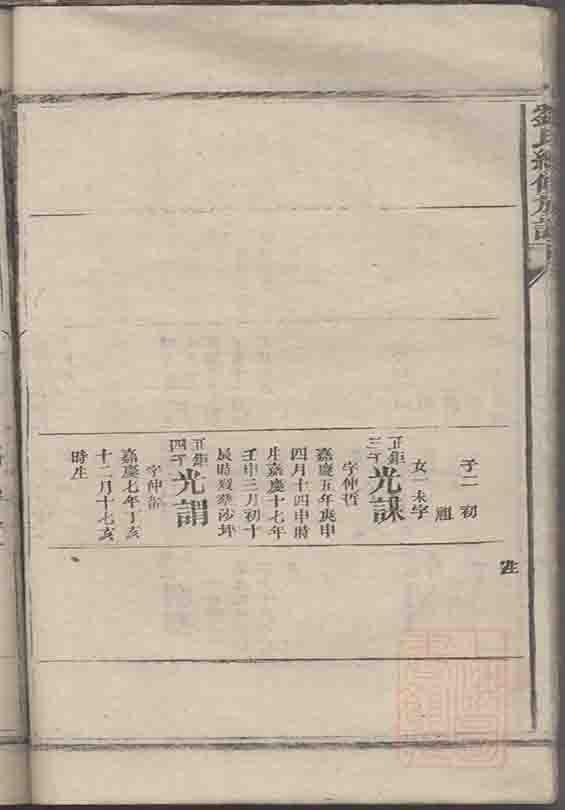 劉氏續修族譜
子二 初
廻
女一未字
正鉅三子 光謀
字仲哲
嘉慶五年庚申
四月十四申時
生嘉慶十七年
壬申三月初十
辰時歿葬沙坪
正鉅四子 光謂
字仲
嘉慶七年丁亥
十二月十七亥
時生